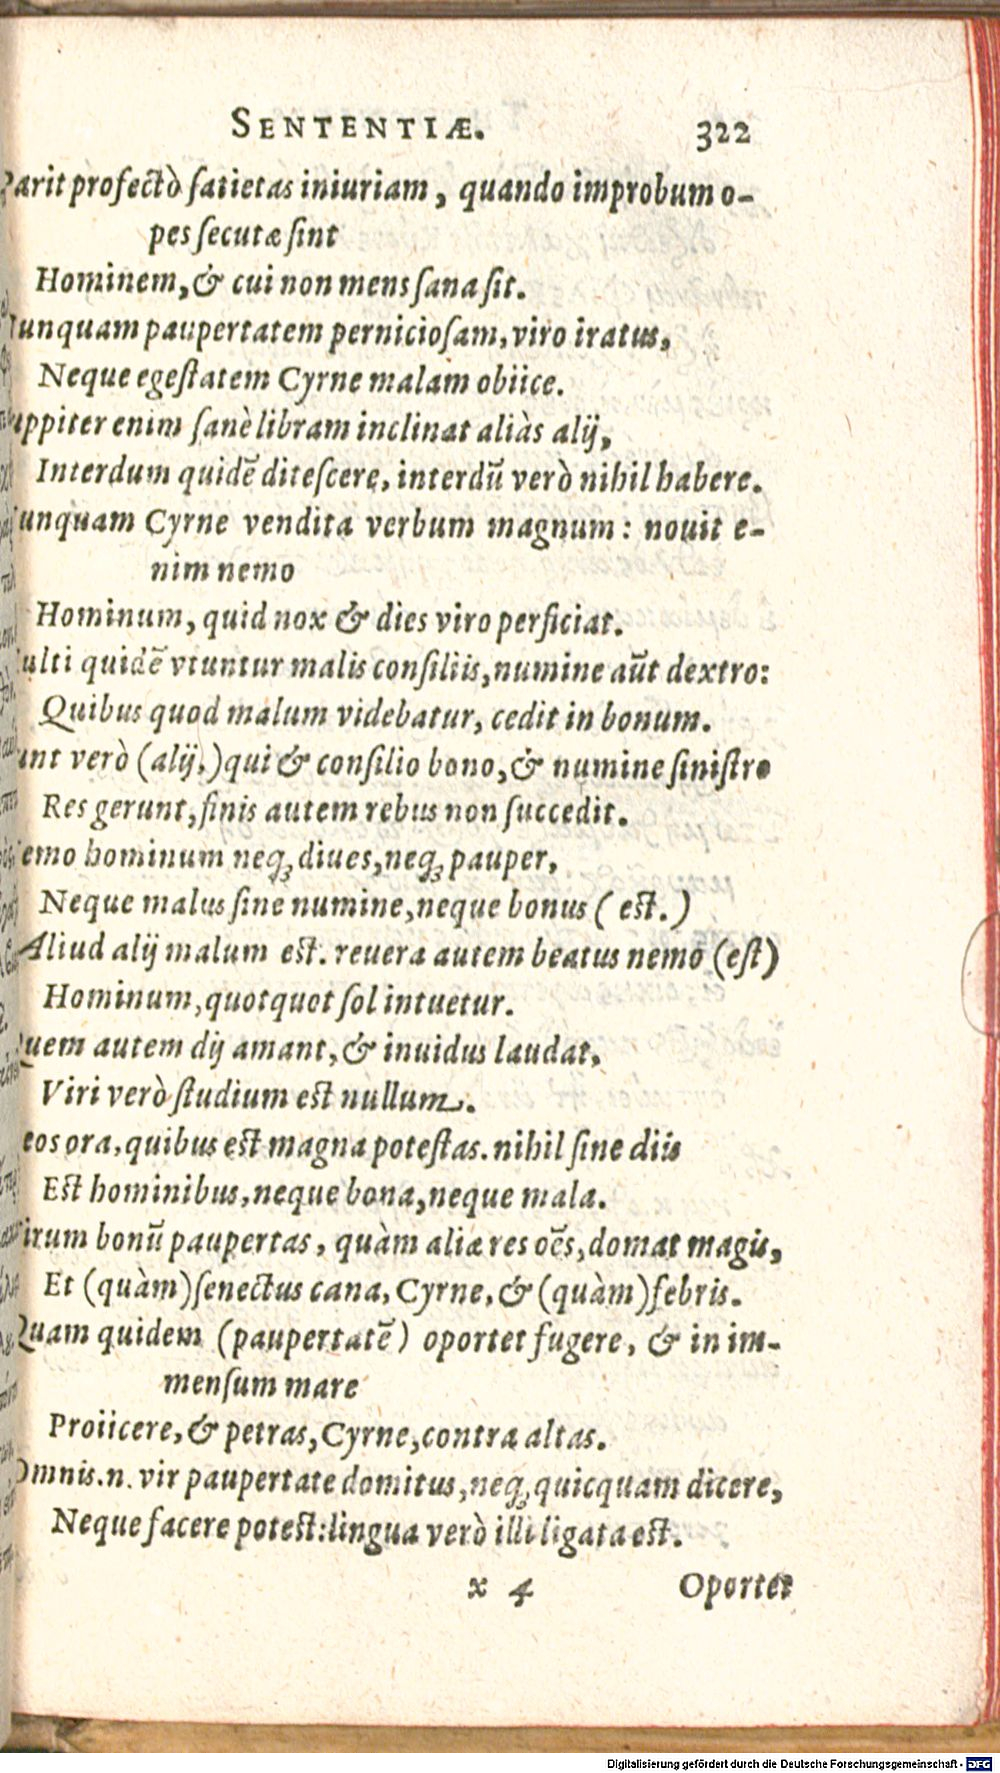 SENTENTIÆ. 322
Parit profectò satietas iniuriam, quando improbum o-
pes secutæ sint
Hominem, & cui non mens sana sit.
Nunquam paupertatem perniciosam, viro iratus,
Neque egestatem Cyrne malam obiice.
uppiter enim sanè libram inclinat aliàs alij,
Interdum quidē ditescere, interdū verò nihil habere.
Nunquam Cyrne vendita verbum magnum: nouit e-
nim nemo
Hominum, quid nox & dies viro perficiat.
ulti quidē vtuntur malis consiliis, numine aūt dextro:
Quibus quod malum videbatur, cedit in bonum.
unt verò (alij,) qui & consilio bono, & numine sinistro
Res gerunt, finis autem rebus non succedit.
emo hominum neq; diues, neq; pauper,
Neque malus sine numine, neque bonus (est.)
Aliud alij malum est. reuera autem beatus nemo (est)
Hominum, quotquot sol intuetur.
Quem autem dij amant, & inuidus laudat,
Viri verò studium est nullum.
eos ora, quibus est magna potestas. nihil sine diis
Est hominibus, neque bona, neque mala.
irum bonū paupertas, quàm aliæ res oēs, domat magis,
Et (quàm) senectus cana, Cyrne, & (quàm) febris.
Quam quidem (paupertatē) oportet fugere, & in im-
mensum mare
Proiicere, & petras, Cyrne, contra altas.
Omnis.n. vir paupertate domitus, neq; quicquam dicere,
Neque facere potest: lingua verò illi ligata est.
x 4 Oportet
Digitalisierung gefördert durch die Deutsche Forschungsgemeinschaft - DFG